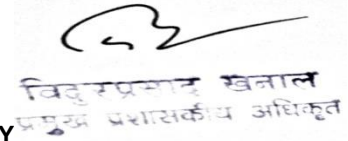 विदुरप्रसाद खनाल
प्रमुख प्रशासकीय अधिकृत
Y